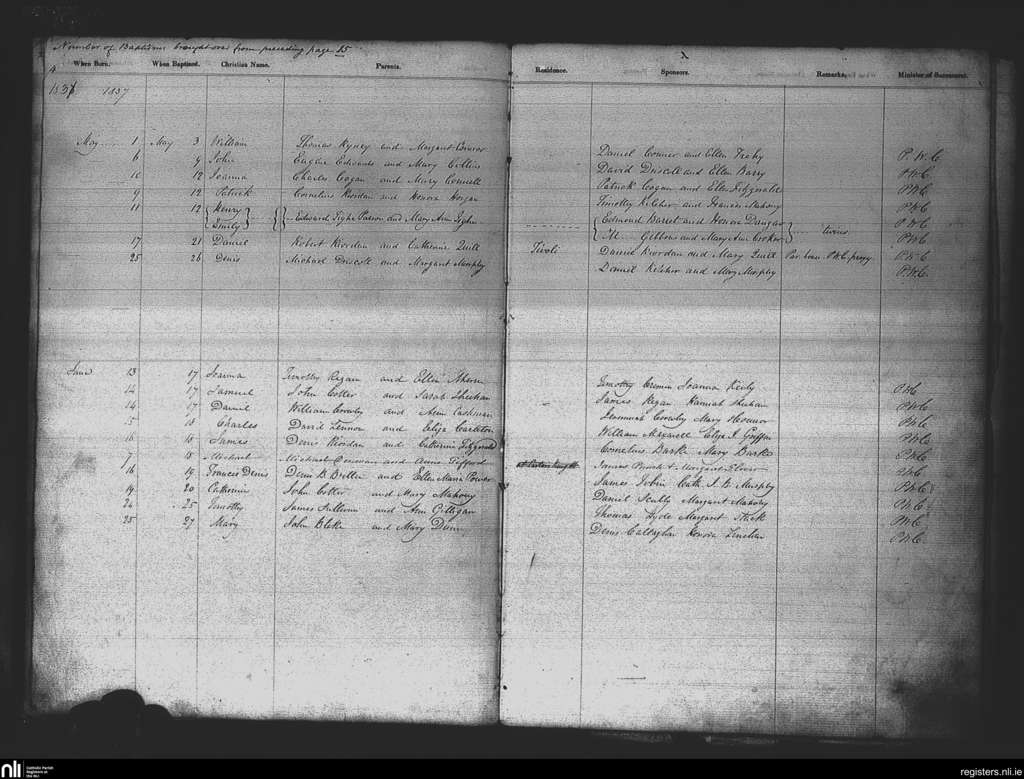 Number of Baptisms brought over from preceding page 15
When Born. When Baptised. Christian Name. Parents. Residence. Sponsors. Remarks. Minister of Sacrament.
1837 1837
May 1 May 3 William Thomas Kyney and Margaret Connor Daniel Conner and Ellen P.W.C
6 9 John Eugene Edwards and Mary Collins David Driscoll and Ellen Barry P.W.C
10 12 Joanna Charles Cogan and Mary Connell Patrick Cogan and Ellen Fitzgerald P.W.C
9 12 Patrick Cornelius Riordan and Honora Horgan Timothy Kelcher and Frances Mahony P.W.C
11 12 Henry Edward Tighe and Mary Ann Tighe Edmond Barret and Honora P.W.C
Emily Gibbons and Mary Ann twins P.W.C
17 21 Daniel Robert Riordan and Catherine Quill Tivoli Daniel Reordan and Mary Quill P.W.C
25 26 Denis Michael Driscoll and Margaret Murphy Dennis Kelcher and Mary Murphy P.W.C
June 13 17 Joanna Timothy Regan and Ellen Timothy Cremin Joanna P.W.C
14 17 Samuel John Cotter and Sarah Sheehan James Regan Hannah Sheehan P.W.C
14 17 Daniel William Crowly and Ann Cashman Jeremiah Crowly Mary P.W.C
15 18 Charles David Lennon and Eliza Carleton William Eliza Griffin P.W.C
16 18 James Denis Riordan and Catherine Fitzgerald Cornelius Burke Mary Burke P.W.C
7 18 Michael Michael and Anne James and Margaret P.W.C
16 19 Francis Denis Denis B. and Ellen Maria Power James Tobin Cath. Murphy P.W.C
19 20 Catherine John Cotter and Mary Mahony Daniel Scully Margaret Mahony P.W.C
24 25 Timothy James Sullivan and Ann Gilligan Thomas Hyde Margaret P.W.C
25 27 Mary John Blake and Mary Dunn Denis Callaghan Honora Linehan P.W.C
nli Catholic Parish Registers at the NLI
registers.nli.ie